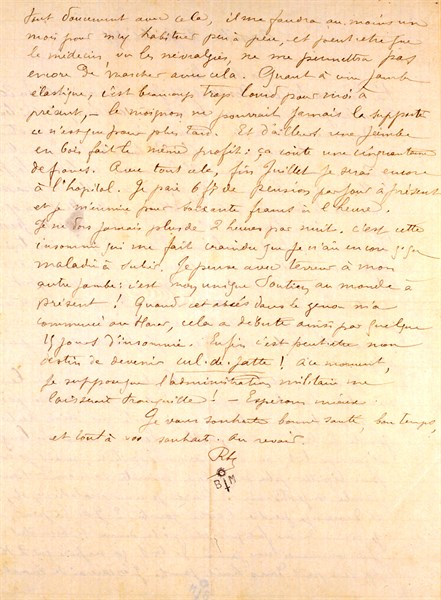 tout doucement avec cela, il me faudra au moins un
mois pour m'y habituer peu à peu, et peut-être que
le médecin, vu les névralgies, ne me permettra pas
encore de marcher avec cela. Quant à une jambe
élastique, c'est beaucoup trop lourd pour moi à
présent, — le moignon ne pourrait jamais la supporter
ce n'est que pour plus tard. Et d'ailleurs une jambe
en bois fait le même profit : ça coûte une cinquantaine
de francs. Avec tout cela, fin Juillet je serai encore
à l'hôpital. Je paie 6 fr de pension par jour à présent
et je m'ennuie pour soixante francs à l'heure.
Je ne dors jamais plus de 2 heures par nuit. C'est cette
insomnie qui me fait craindre que je n'aie encore quelque
maladie à subir. Je pense avec terreur à mon
autre jambe : c'est mon unique soutien au monde à
présent ! Quand cet abcès dans le genou m'a
commencé au Harar, cela a débuté ainsi par quelque
15 jours d'insomnie. Enfin c'est peut-être mon
destin de devenir cul-de-jatte ! A ce moment,
je suppose que l'administration militaire me
laisserait tranquille ! — Espérons mieux.
Je vous souhaite bonne santé, bon temps,
et tout à vos souhaits. Au revoir.
Rbd
B M